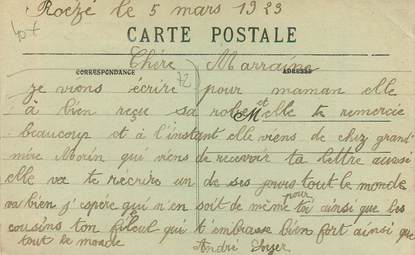 Roëzé le 5 mars 1923
CARTE POSTALE
Chére Marraine
CORRESPONDANCE ADRESSE
je viens écrire pour maman elle
à bien reçu sa robe et elle te remercie
beaucoup et à l'instant elle viens de chez grand-
mère Morin qui viens de recevoir ta lettre aussi
elle va te récrire un de ses jours tout le monde
va bien j'espère qu'il n'en soit de même pour toi ainsi que les
cousins ton filleul qui t'embrasse bien fort ainsi que
tout le monde
André